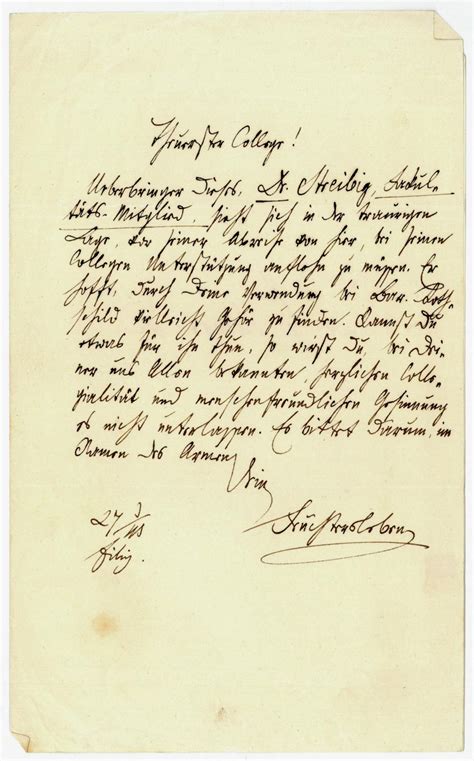 Theuerster College!
Ueberbringer dieses, Dr. Streibig, Facul-
täts-Mitglied, sieht sich in der traurigen
Lage, vor seiner Abreise von hier, bei seinen
Collegen Unterstützung anflehn zu müssen. Er
hofft, durch Deine Verwendung bei Bar. Roth-
schild vielleicht Gehör zu finden. Kannst Du
etwas für ihn thun, so wirst Du, bei Dei-
ner uns Allen bekannten, herzlichen Colle-
gialität und menschenfreundlichen Gesinnung
es nicht unterlassen. Es bittet darum, im
Namen des Armen
Dein
Feuchtersleben
27 3/48
eilig.